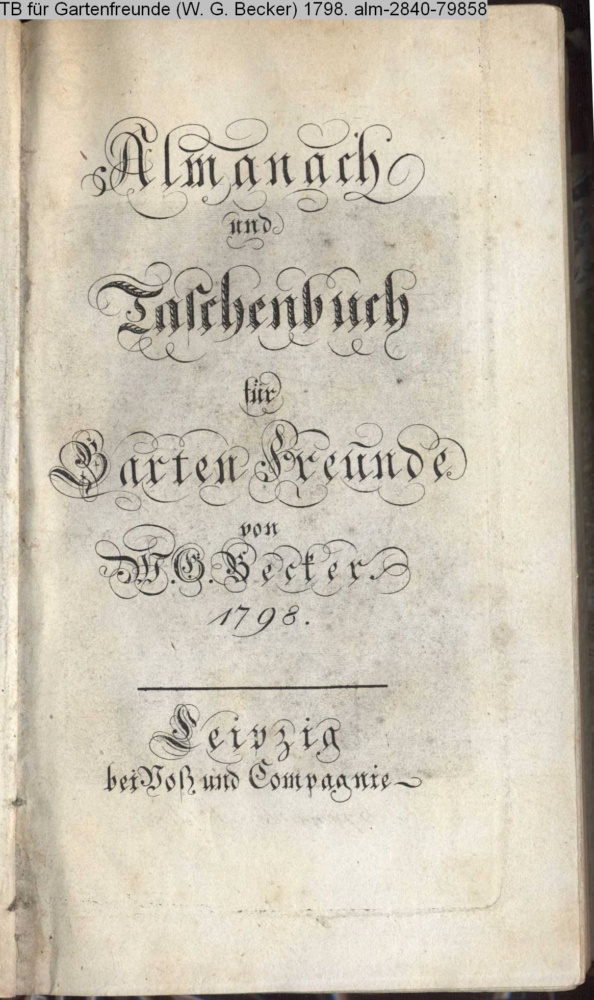 TB für Gartenfreunde (W. G. Becker) 1798. alm-2840-79858
Almanach
und
Taschenbuch
für
Garten Freunde
von
W. G. Becker.
1798.
Leipzig
bei Voß und Compagnie